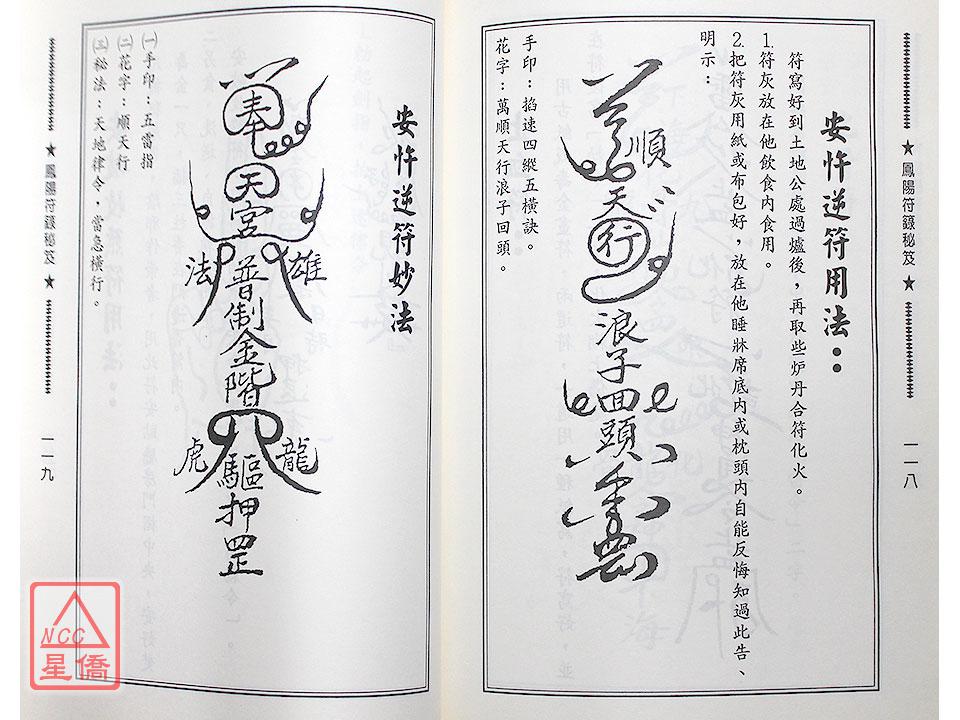 ★ 鳳陽符籙秘笈 ★
一一八
安忤逆符用法：
符寫好到土地公處過爐後，再取些炉丹合符化火。
1.符灰放在他飲食內食用。
2.把符灰用紙或布包好，放在他睡牀席底內或枕頭內自能反悔知過此告、
明示：
順
天
行
浪子回頭
手印：掐速四縱五橫訣。
花字：萬順天行浪子回頭。
安忤逆符妙法
奉
天宮
法 雄
普制金階
虎 龍
驅押罡
㈠手印：五雷指
㈡花字：順天行
㈢秘法：天地律令，當急橫行。
★ 鳳陽符籙秘笈 ★
一一九
NCC
星僑